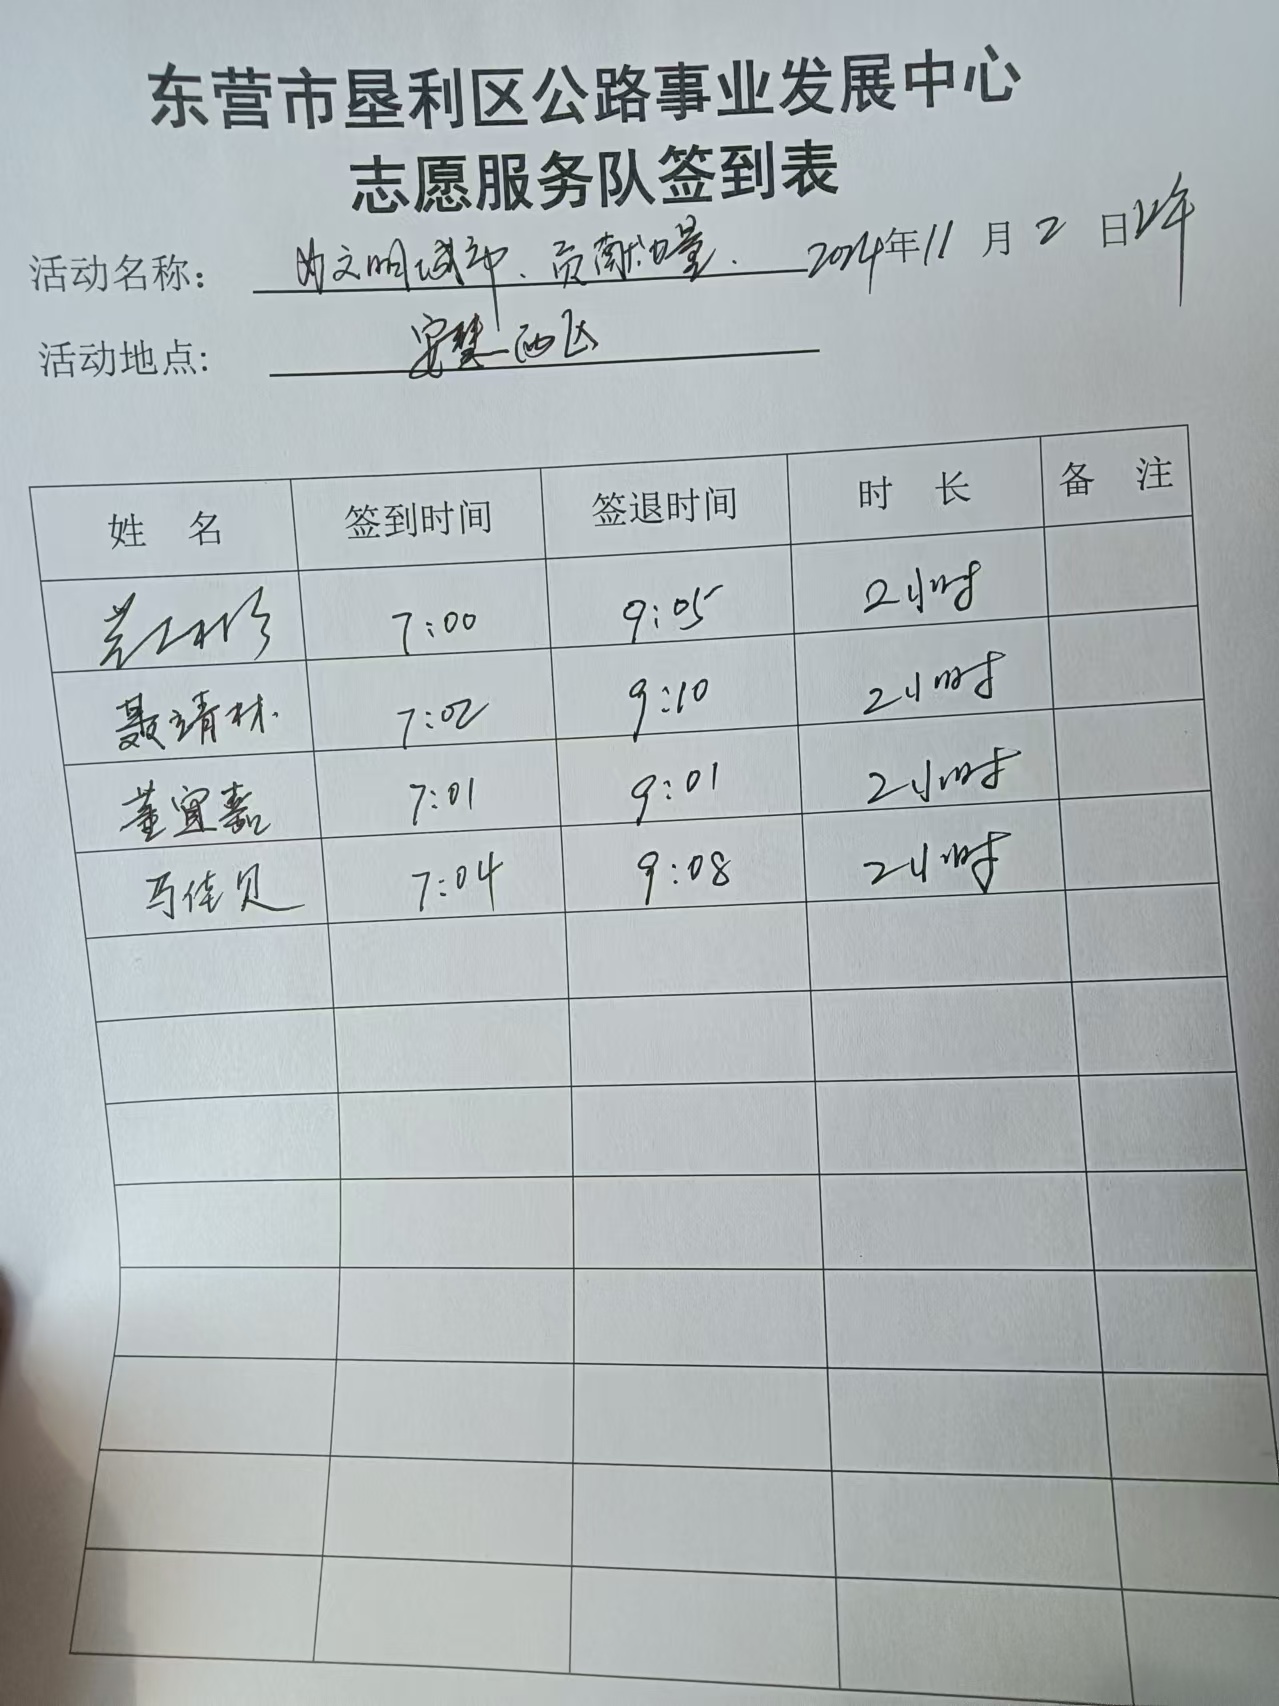 东营市垦利区公路事业发展中心
志愿服务队签到表
活动名称: 为文明城市、贡献力量. 2024年11月2日上午
活动地点: 西区
姓名 签到时间 签退时间 时长 备注
7:00 9:05 2小时
聂靖林 7:02 9:10 2小时
董宜嘉 7:01 9:01 2小时
马佳贝 7:04 9:08 2小时